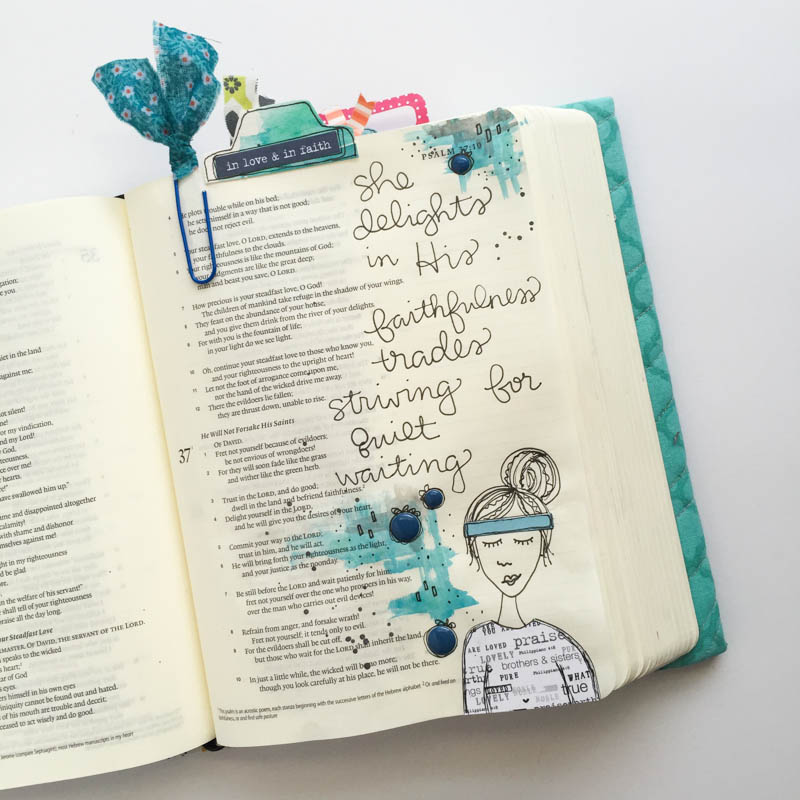 35
gation:
e you
iet in the land
against me.
ot silent!
or my vindication,
nd my Lord!
e GOD,
hteousness,
ce over me!
hearts,
e!"
have swallowed him up."
ame and disappointed altogether
calamity!
with shame and dishonor
mselves against me!
ght in my righteousness
nd be glad
re,
in the welfare of his servant!"
e shall tell of your righteousness
praise all the day long.
our Steadfast Love
MASTER. OF DAVID, THE SERVANT OF THE LORD.
speaks to the wicked
heart;
of God
es.
ers himself in his own eyes
iniquity cannot be found out and hated.
of his mouth are trouble and deceit;
ceased to act wisely and do good.
Jerome (compare Septuagint); most Hebrew manuscripts in my heart
in love & in faith
4 He plots trouble while on his bed;
he sets himself in a way that is not good;
he does not reject evil.
5 Your steadfast love, O LORD, extends to the heavens,
your faithfulness to the clouds.
6 Your righteousness is like the mountains of God;
your judgments are like the great deep;
man and beast you save, O LORD.
7 How precious is your steadfast love, O God!
The children of mankind take refuge in the shadow of your wings.
8 They feast on the abundance of your house,
and you give them drink from the river of your delights.
9 For with you is the fountain of life;
in your light do we see light.
10 Oh, continue your steadfast love to those who know you,
and your righteousness to the upright of heart!
11 Let not the foot of arrogance come upon me,
nor the hand of the wicked drive me away.
12 There the evildoers lie fallen;
they are thrust down, unable to rise.
He Will Not Forsake His Saints
37 OF DAVID.
1 Fret not yourself because of evildoers;
be not envious of wrongdoers!
2 For they will soon fade like the grass
and wither like the green herb.
3 Trust in the LORD, and do good;
dwell in the land and befriend faithfulness.
4 Delight yourself in the LORD,
and he will give you the desires of your heart.
5 Commit your way to the LORD;
trust in him, and he will act.
6 He will bring forth your righteousness as the light,
and your justice as the noonday.
7 Be still before the LORD and wait patiently for him;
fret not yourself over the one who prospers in his way,
over the man who carries out evil devices!
8 Refrain from anger, and forsake wrath!
Fret not yourself; it tends only to evil.
9 For the evildoers shall be cut off,
but those who wait for the LORD shall inherit the land
10 In just a little while, the wicked will be no more;
though you look carefully at his place, he will not be there.
This psalm is an acrostic poem, each stanza beginning with the successive letters of the Hebrew alphabet 2 Or and feed on
faithfulness, or and find safe pasture
PSALM 37:10
she
delights
in His
faithfulness
trades
striving for
quiet
waiting
ARE LOVED praise
LOVELY Philippians 4:8
true brothers & sisters
PURE Philippians 4:8
ngs LOVED noble
LOVELY WORLD PURE
WHAT
true